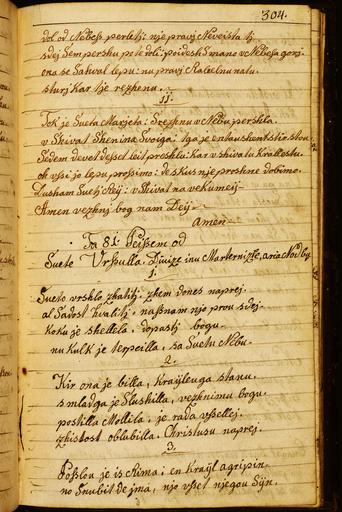 304.
dol od Nebess perletj: nje pravj Neveista tj
sdej Sempershu pote doli: poidesh Smano v Nebesa gorj.
ona se Sahval lepu: nu pravj
sturj Kar tje rezhenu.
11
Tok je Sueta Marjeta: v Nebu pershla.
v Skivat Shenina Svoiga: tga je
Sedem devet deset leit proshlu: kar v shivatu
ok vsi jo lepu prossimo: de skus nje proshne dobimo.
Dusham Suelj Reij: v Shivat na vekumeij
Amen vezhnj bog nam Deij
Amen
Ta 81. Peissem od
Suete Vrssulla Divize inu Marternizhe,
1.
Sueto vrshlo zhastitj. zhem dones naprej.
al Sadost hvalitj. nassnam njo prou sdej.
Koku je shellela, dopastj bogu.
nu Kulk je terpeilla, sa Suetu Nebu.
2.
Kir ona je billa, Krayleuga stanu.
s mladga je Slushilla, vezhnimu bogu.
postilla Mollila, je rada vssellej.
zhistost oblubilla, Christusu naprej.
3.
Posslou je is Rima: en Krayl agripin.
no Snubit de jma, njo vsset njegou Sÿn.